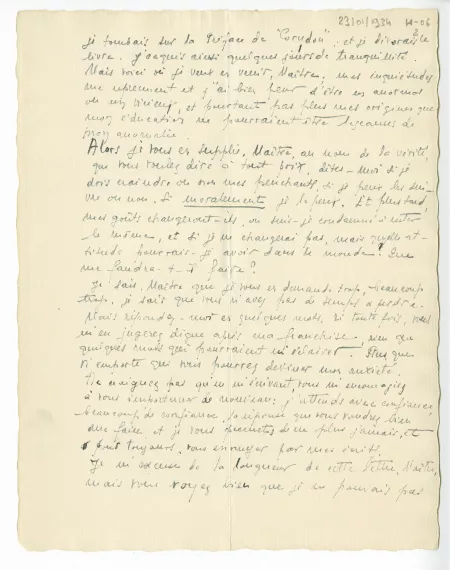 23/01/1934 H-06
je tombais sur la Préface de "Corydon", et je dévorais le
livre. J'acquis ainsi quelques jours de tranquillité.
Mais voici où je veux en venir, Maître, mes inquiétudes
me reprennent et j'ai bien peur d'être un anormal
ou un vicieux, et pourtant pas plus mes origines que
mon éducation ne pourraient être
mon anomalie.
Alors je vous en supplie, Maître, au nom de la vérité,
que vous voulez dire à tout prix, dites-moi si je
dois craindre ou non mes penchants, si je peux les sui-
vre ou non. Si moralement je le peux. Et plus tard,
mes goûts changeront-ils, ou suis-je condamné à rester
le même, et si je ne changerai pas, mais quelle at-
titude pourrais-je avoir dans le monde? Que
me faudra-t-il faire?
Je sais, Maître que je vous en demande trop, beaucoup
trop, je sais que vous n'avez pas de temps à perdre.
Mais répondez-moi en quelques mots, si toutefois, vous
m'en jugerez digne après ma franchise, rien que
quelques mots qui pourraient m'éclairer.
si emporté que vous pouvez deviner mon anxiété.
Ne craignez pas qu'en m'écrivant vous m'encouragiez
à vous importuner de nouveau; j'attends avec confiance,
beaucoup de confiance, la réponse que vous voudrez bien
me faire et je vous promets de ne plus jamais, et
pour toujours, vous ennuyer par mes écrits.
Je m'excuse de la longueur de cette lettre, Maître,
mais vous voyez bien que je ne pouvais pas